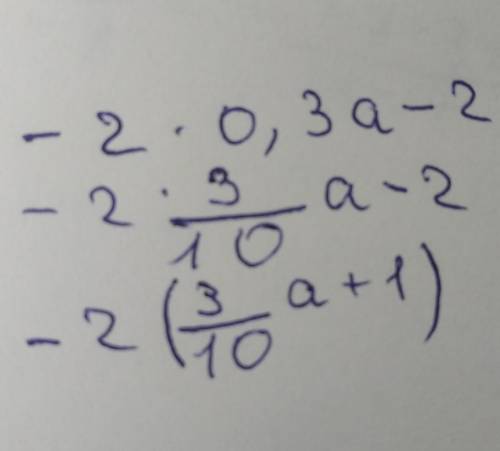 - 2 · 0,3a - 2
- 2 · 3/10 a - 2
- 2 (3/10 a + 1)